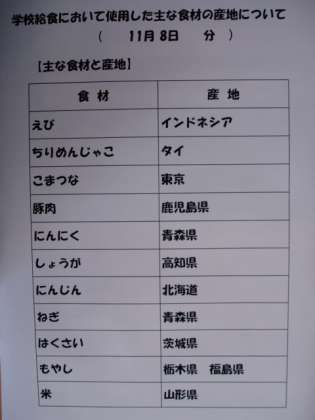 学校給食において使用した主な食材の産地について
( 11月 8日 分 )
【主な食材と産地】
食 材 産 地
えび インドネシア
ちりめんじゃこ タイ
こまつな 東京
豚肉 鹿児島県
にんにく 青森県
しょうが 高知県
にんじん 北海道
ねぎ 青森県
はくさい 茨城県
もやし 栃木県 福島県
米 山形県